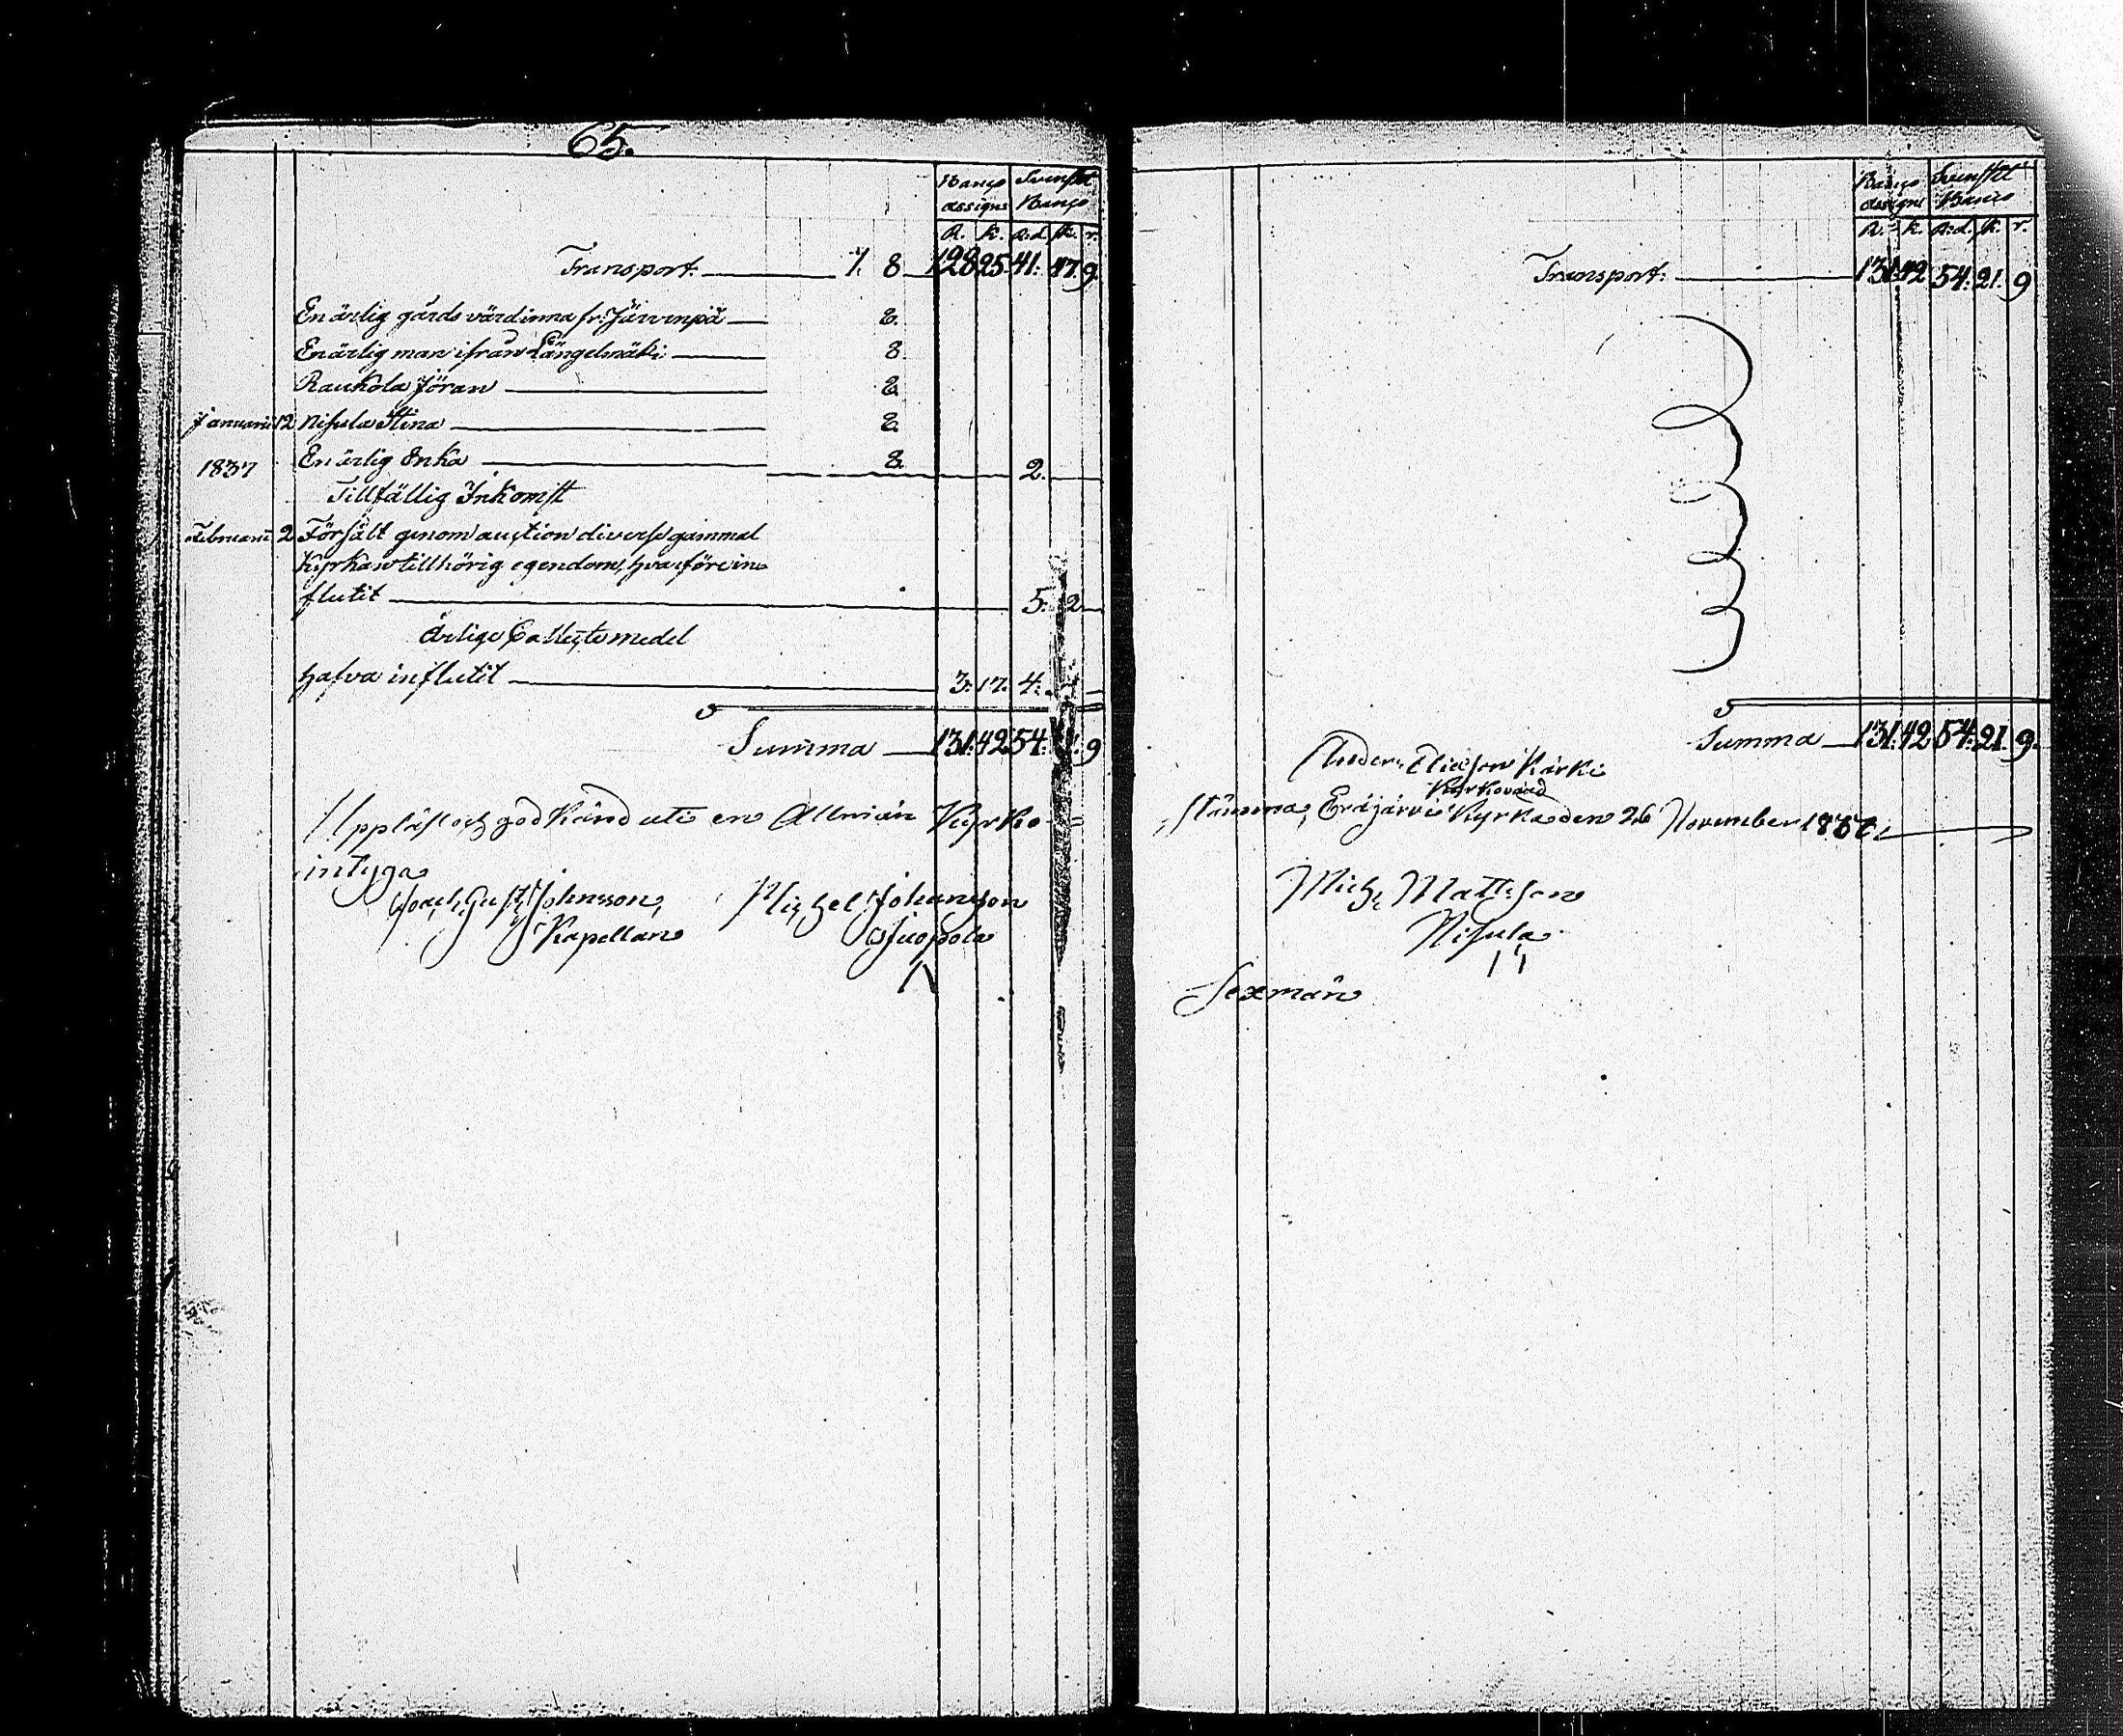 65.
Banco Svenskt
assigns Banco
R. k. R:d. sk. r.
Transport. 1. 8 128 25. 41. 17 9.
En ärlig gårds värdinna fr: Järvenpä 8.
En ärlig man ifrån Längelmäki 8.
Raukola Jöran 8.
Januarii 12 Nisula Stina 8.
1837 En ärlig Enka 8. 2.
Tillfällig Inkomst
Februarii 2 Försålt genom auction diverse gammal
Kyrkan tillhörig egendom, hvarföre in
flutit 5. 2
Ärlige Collectmedel
hafva influtit 3. 17. 4.
Summa 131. 42 54. 9
Uppläst och godkänd uti en Allmän Kyrko-
intyga
Gust. Johnsson, Michel Johansson
Kapellan Uopola
Banco Svenskt
assigns Banco
R. k. R:d. sk. r.
Transport. 131. 42 54. 21. 9
Summa 131. 42 54. 21. 9.
Anders Eliasson Kärki
Kyrkovärd
stämma, Eräjärvi Kyrka den 26 November 1837,
Mich: Mattsson
Nisula
Sexmän